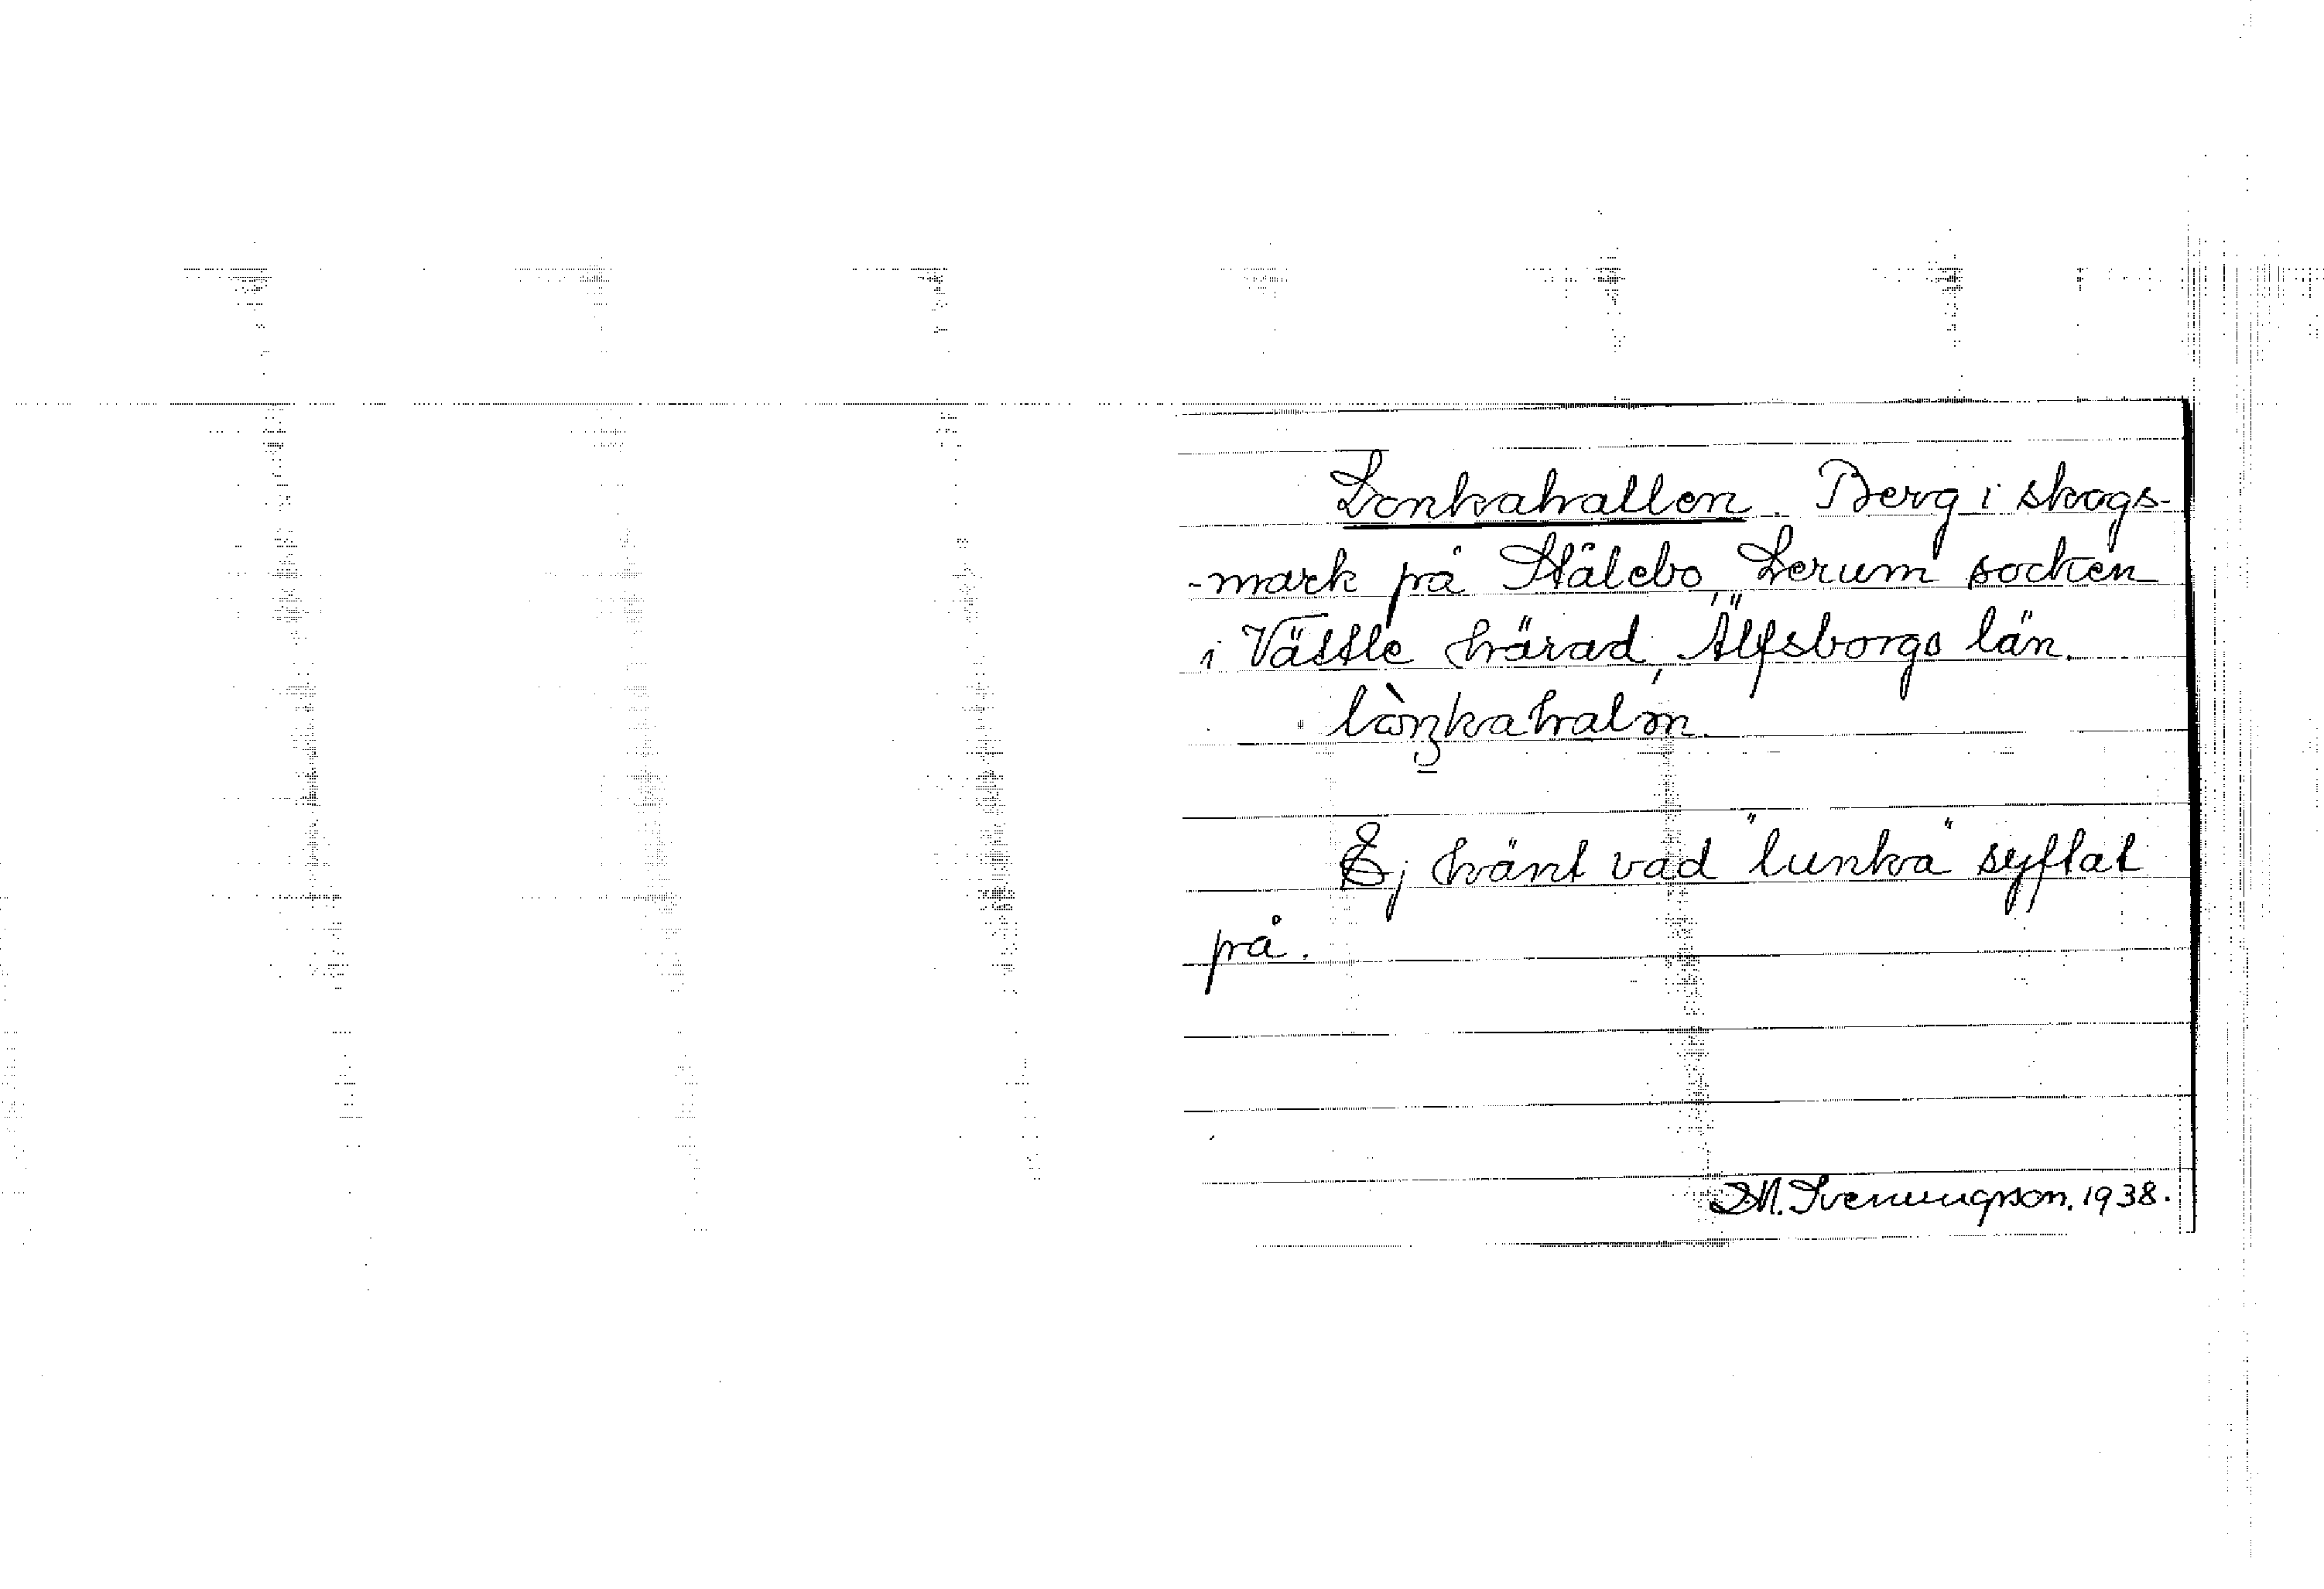 Lonkahallen. Berg i skogs-
-mark på Stålebo, Lerum socken
i Vättle härad, Älfsborgs län.
Ej känt vad "lunka" syftat
på.
M. Svenungson. 1938.